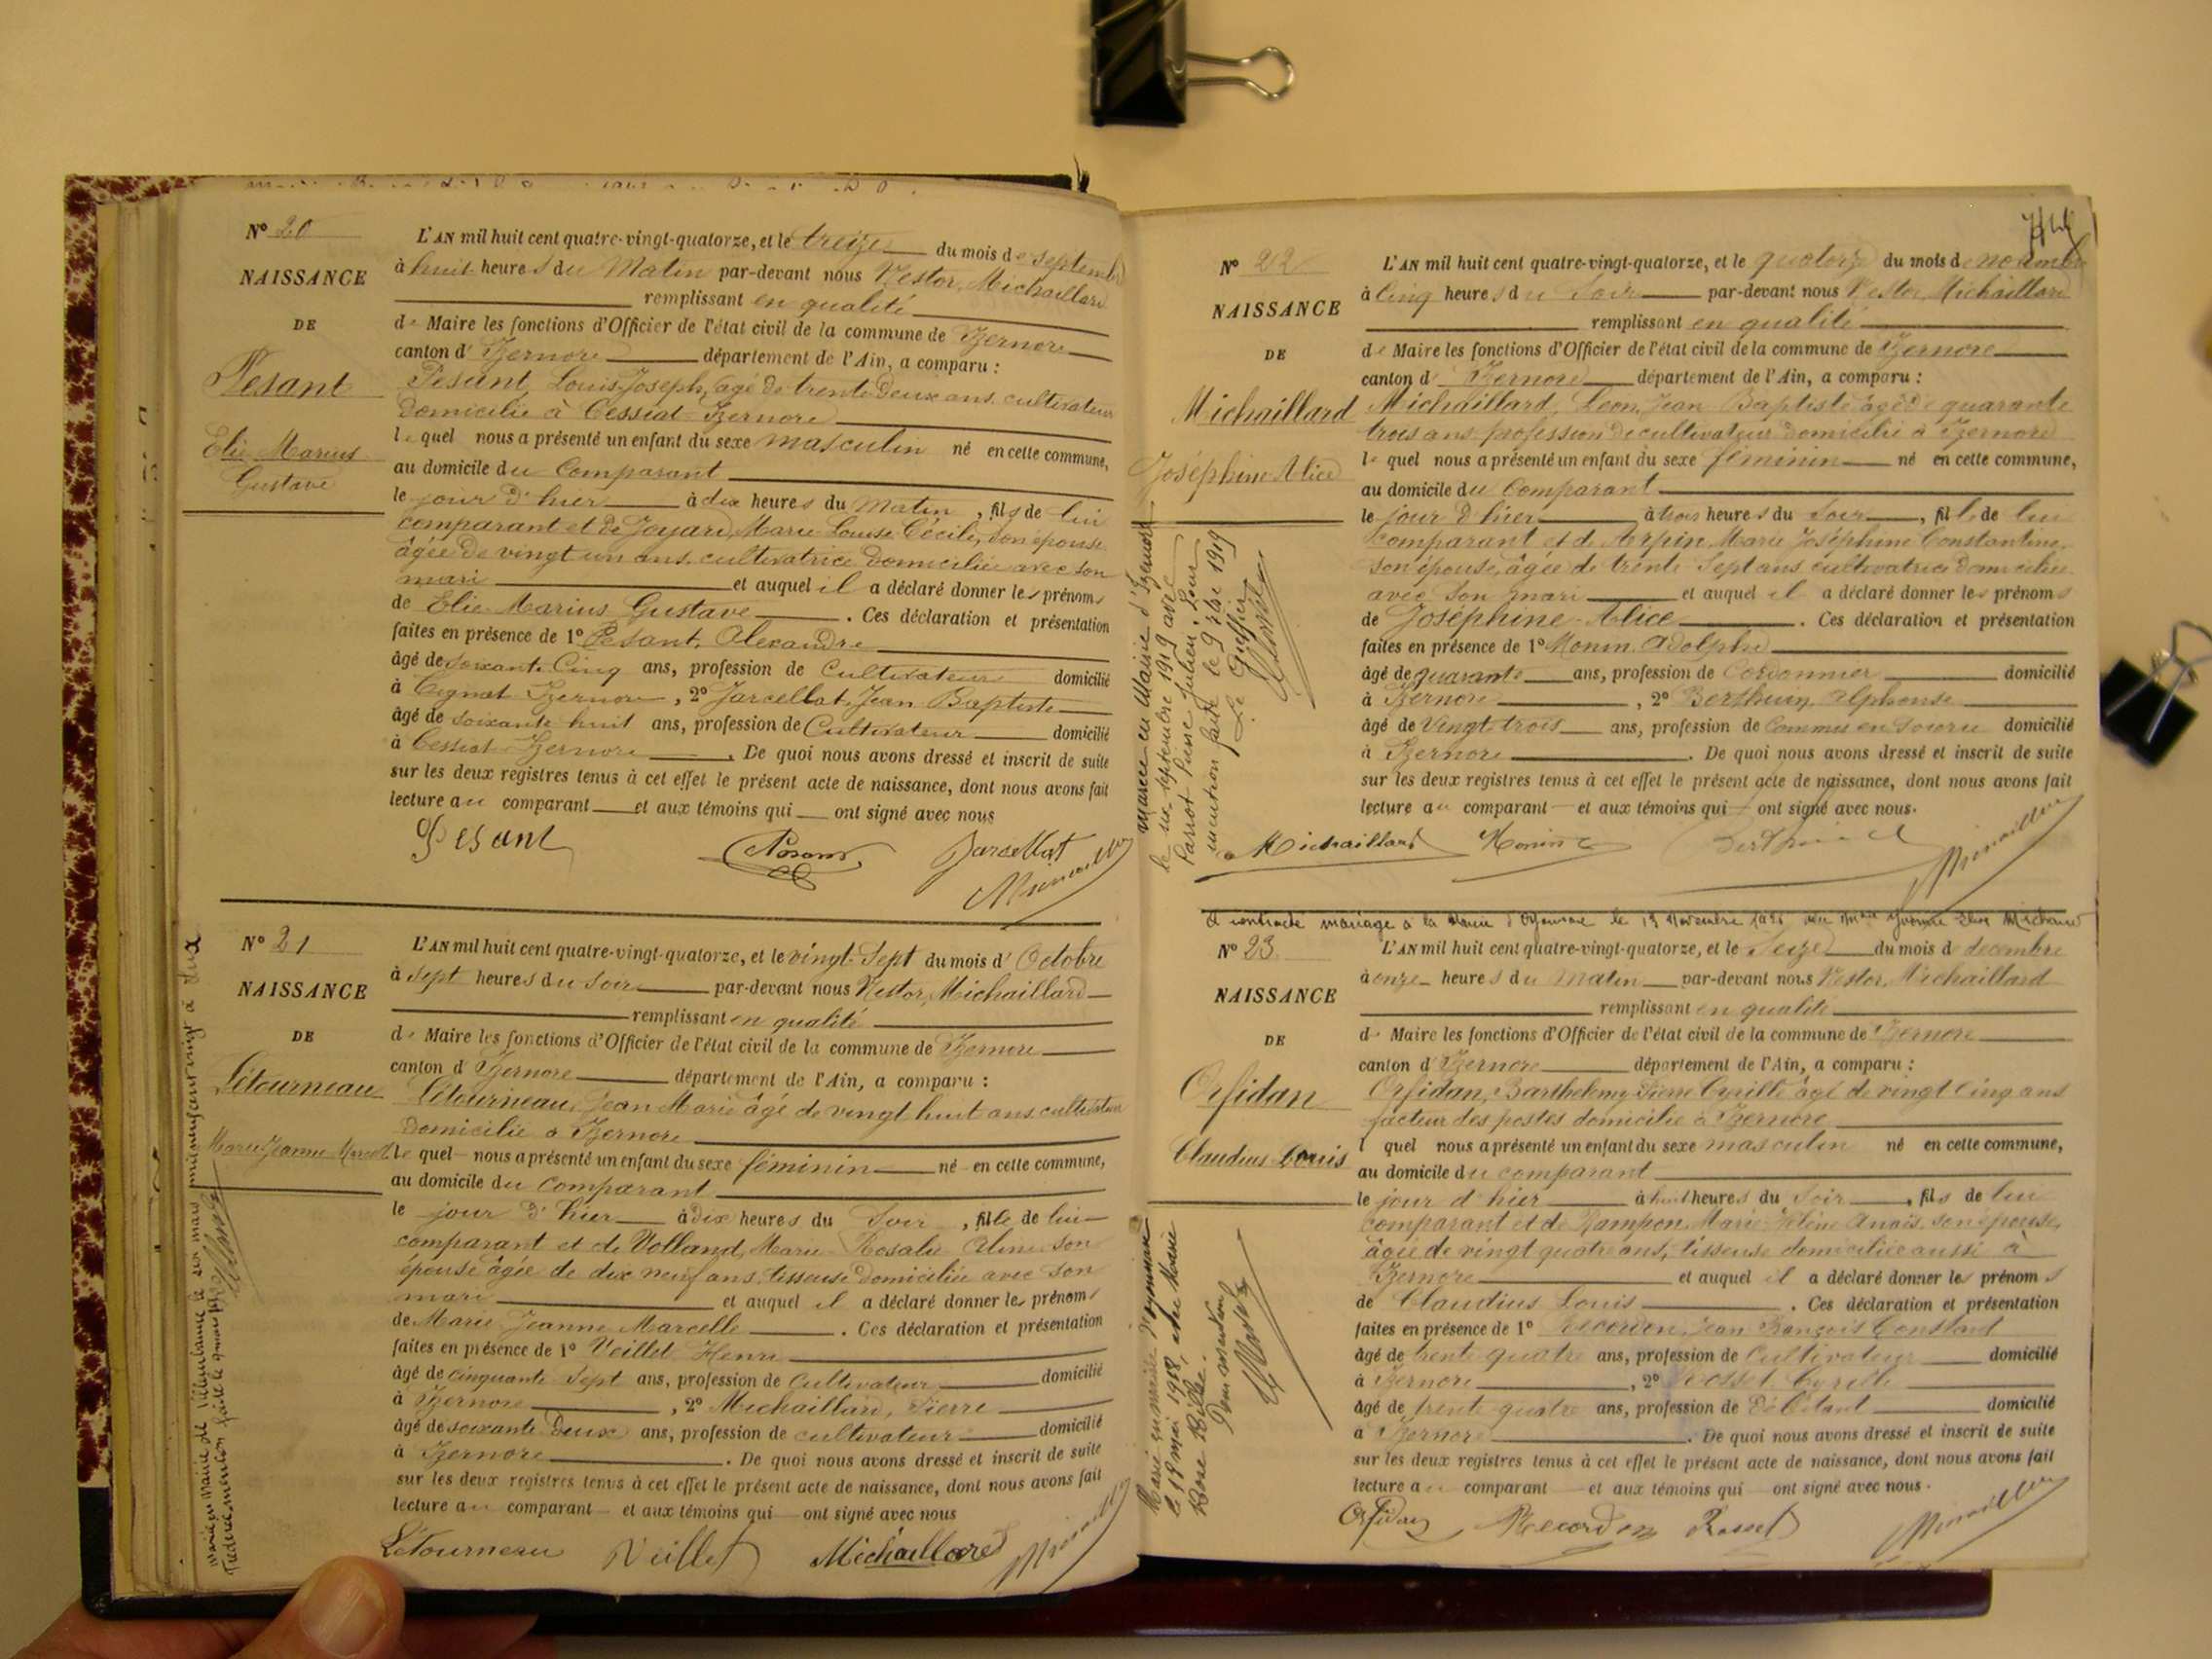 N° 20
NAISSANCE
DE
Pesant
Elie Marius
Gustave
L'AN mil huit cent quatre-vingt-quatorze, et le treize du mois de septembre
à huit heures du Matin par-devant nous Nestor Michaillard
remplissant en qualité
de Maire les fonctions d'Officier de l'état civil de la commune de Izernore
canton d' Izernore département de l'Ain, a comparu :
Pesant, Louis Joseph, agé de trente deux ans cultivateur
domicilié à Cessiat Izernore
le quel nous a présenté un enfant du sexe masculin né en cette commune,
au domicile du Comparant
le jour d'hier à dix heures du Matin, fils de lui
comparant et de Joyard, Marie Louise Cécile, son épouse
âgée de vingt un ans, cultivatrice domiciliée avec son
mari et auquel il a déclaré donner les prénoms
de Elie Marius Gustave. Ces déclaration et présentation
faites en présence de 1° Pesant, Alexandre
âgé de soixante Cinq ans, profession de Cultivateur domicilié
à Ceignat Izernore, 2° Jarcellat, Jean Baptiste
âgé de soixante huit ans, profession de Cultivateur domicilié
à Cessiat Izernore. De quoi nous avons dressé et inscrit de suite
sur les deux registres tenus à cet effet le présent acte de naissance, dont nous avons fait
lecture au comparant et aux témoins qui ont signé avec nous
Pesant Jarcellat
N° 21
NAISSANCE
DE
Létourneau
Marie Jeanne Marcelle
L'AN mil huit cent quatre-vingt-quatorze, et le vingt Sept du mois d' Octobre
à sept heures du soir par-devant nous Nestor, Michaillard
remplissant en qualité
de Maire les fonctions d'Officier de l'état civil de la commune de Izernore
canton d' Izernore département de l'Ain, a comparu :
Létourneau, Jean Marie âgé de vingt huit ans cultivateur
domicilié à Izernore
le quel nous a présenté un enfant du sexe féminin né en cette commune,
au domicile du comparant
le jour d'hier à dix heures du Soir, fille de lui
comparant et de Volland, Marie Rosalie Aline son
épouse âgée de dix neuf ans, tisseuse domiciliée avec son
mari et auquel il a déclaré donner les prénoms
de Marie Jeanne Marcelle. Ces déclaration et présentation
faites en présence de 1° Veillet Henri
âgé de cinquante Sept ans, profession de Cultivateur domicilié
à Izernore, 2° Michaillard, Pierre
âgé de soixante Deux ans, profession de cultivateur domicilié
à Izernore. De quoi nous avons dressé et inscrit de suite
sur les deux registres tenus à cet effet le présent acte de naissance, dont nous avons fait
lecture au comparant et aux témoins qui ont signé avec nous
Létourneau Veillet Michaillard
N° 22
NAISSANCE
DE
Michaillard
Joséphine Alice
Mariée en Mairie d'Izernore
le six septembre 1919 avec
Parrot Pierre Julien, Pour
mention faite le 9 7bre 1919
Le Greffier
L'AN mil huit cent quatre-vingt-quatorze, et le quatorze du mois de novembre
à Cinq heures du Soir par-devant nous Nestor Michaillard
remplissant en qualité
de Maire les fonctions d'Officier de l'état civil de la commune de Izernore
canton d' Izernore département de l'Ain, a comparu :
Michaillard, Léon, Jean Baptiste âgé de quarante
trois ans profession de cultivateur domicilié à Izernore
le quel nous a présenté un enfant du sexe féminin né en cette commune,
au domicile du Comparant
le jour d'hier à trois heures du Soir, fille de lui
comparant et d' Arpin, Marie Joséphine Constantine,
son épouse, âgée de trente Sept ans cultivatrice domiciliée
avec Son mari et auquel il a déclaré donner les prénoms
de Joséphine Alice. Ces déclaration et présentation
faites en présence de 1° Monin, Adolphe
âgé de quarante ans, profession de Cordonnier domicilié
à Izernore, 2° Berthuin, Alphonse
âgé de Vingt trois ans, profession de Commis en soierie domicilié
à Izernore. De quoi nous avons dressé et inscrit de suite
sur les deux registres tenus à cet effet le présent acte de naissance, dont nous avons fait
lecture au comparant et aux témoins qui ont signé avec nous.
Michaillard Monin
A contracté mariage à la Mairie d'Oyonnax le 13 Novembre
N° 23
NAISSANCE
DE
Orfidan
Claudius Louis
Marié en mairie d'Oyonnax
Rose
Dont mention
L'AN mil huit cent quatre-vingt-quatorze, et le Seize du mois de decembre
à onze heures du matin par-devant nous Nestor, Michaillard
remplissant en qualité
de Maire les fonctions d'Officier de l'état civil de la commune de Izernore
canton d' Izernore département de l'Ain, a comparu :
Orfidan, Barthélemy Pierre Cyrille âgé de vingt Cinq ans
facteur des postes domicilié à Izernore
l quel nous a présenté un enfant du sexe masculin né en cette commune,
au domicile du comparant
le jour d'hier à huit heures du Soir, fils de lui
comparant et de Rampon, Marie Anaïs, son épouse,
âgée de vingt quatre ans, tisseuse domiciliée aussi à
Izernore et auquel il a déclaré donner les prénoms
de Claudius Louis. Ces déclaration et présentation
faites en présence de 1° Recordon, Jean François Constant
âgé de trente quatre ans, profession de Cultivateur domicilié
à Izernore, 2° Rosset, Cyrille
âgé de trente quatre ans, profession de Débitant domicilié
à Izernore. De quoi nous avons dressé et inscrit de suite
sur les deux registres tenus à cet effet le présent acte de naissance, dont nous avons fait
lecture au comparant et aux témoins qui ont signé avec nous.
Orfidan Recordon Rosset